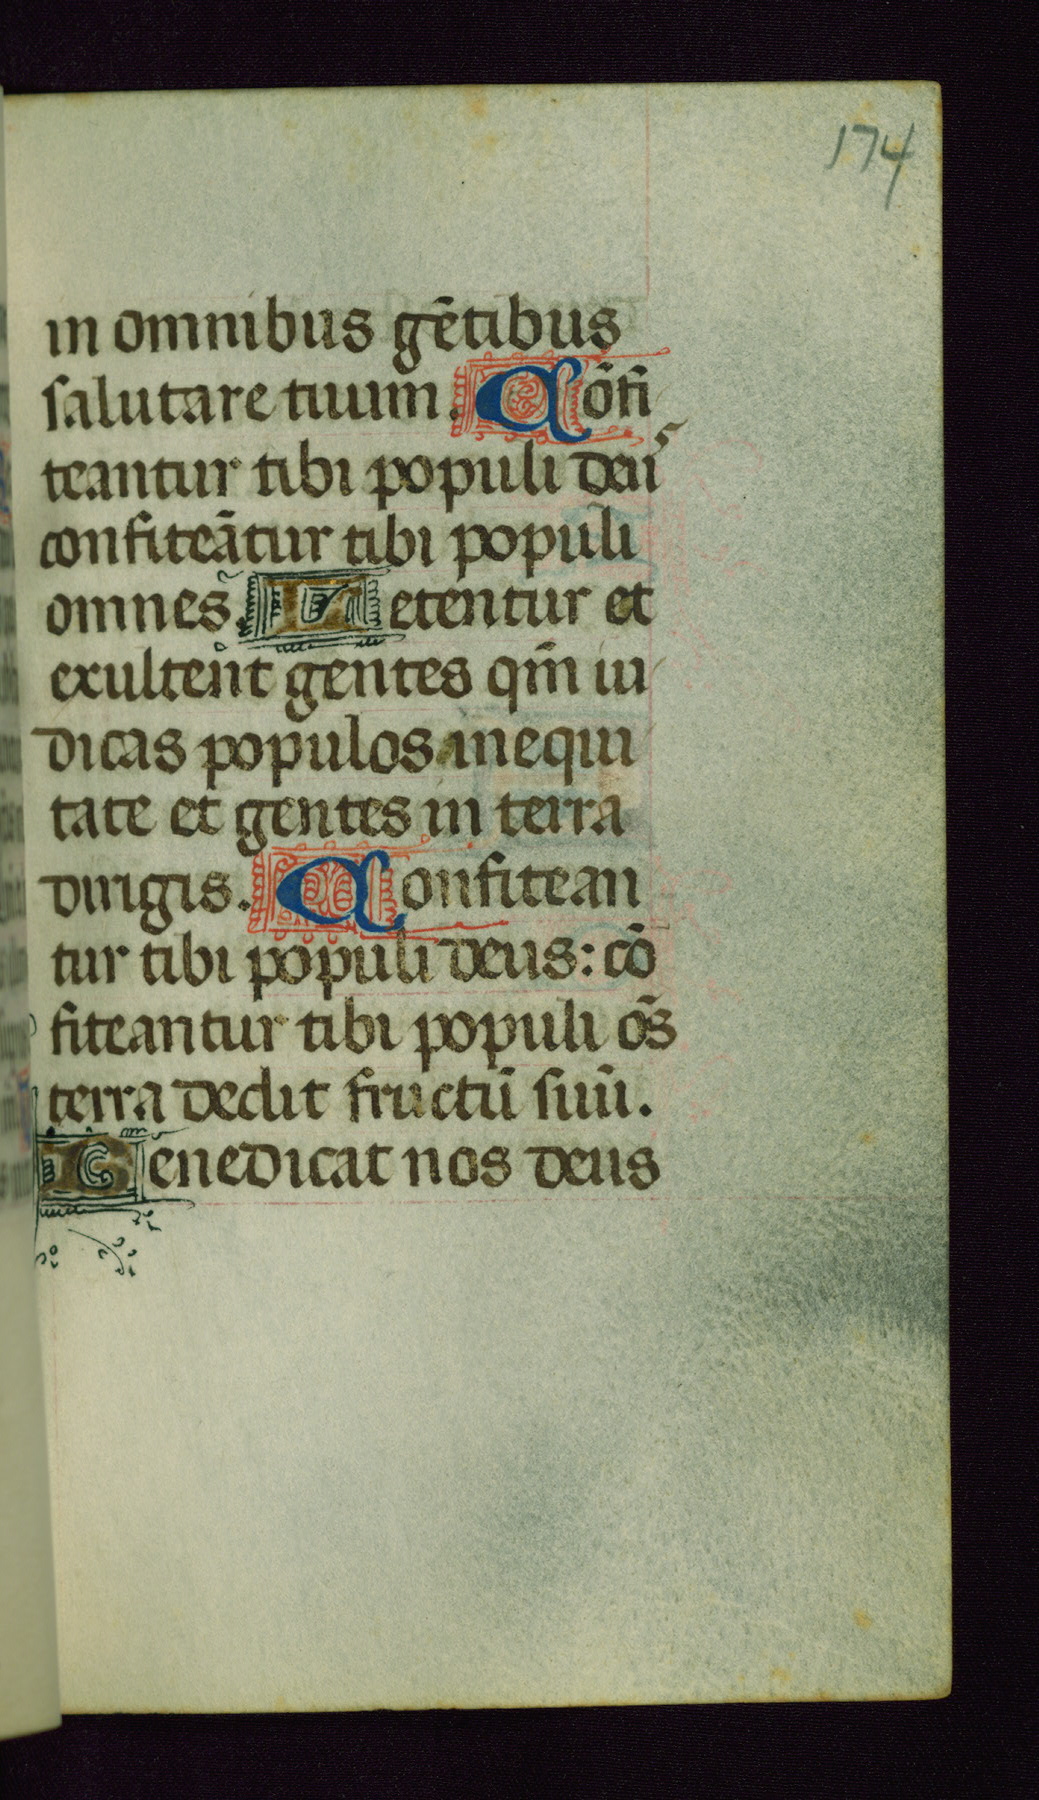 174
in omnibus gētibus
salutare tuum. Cōfi
teantur tibi populi deus
confiteātur tibi populi
omnes. Letentur et
exultent gentes qm̄ iu
dicas populos in equi
tate et gentes in terra
dirigis. Confitean
tur tibi populi deus: cō
fiteantur tibi populi om̄s
terra dedit fructū suū.
Benedicat nos deus